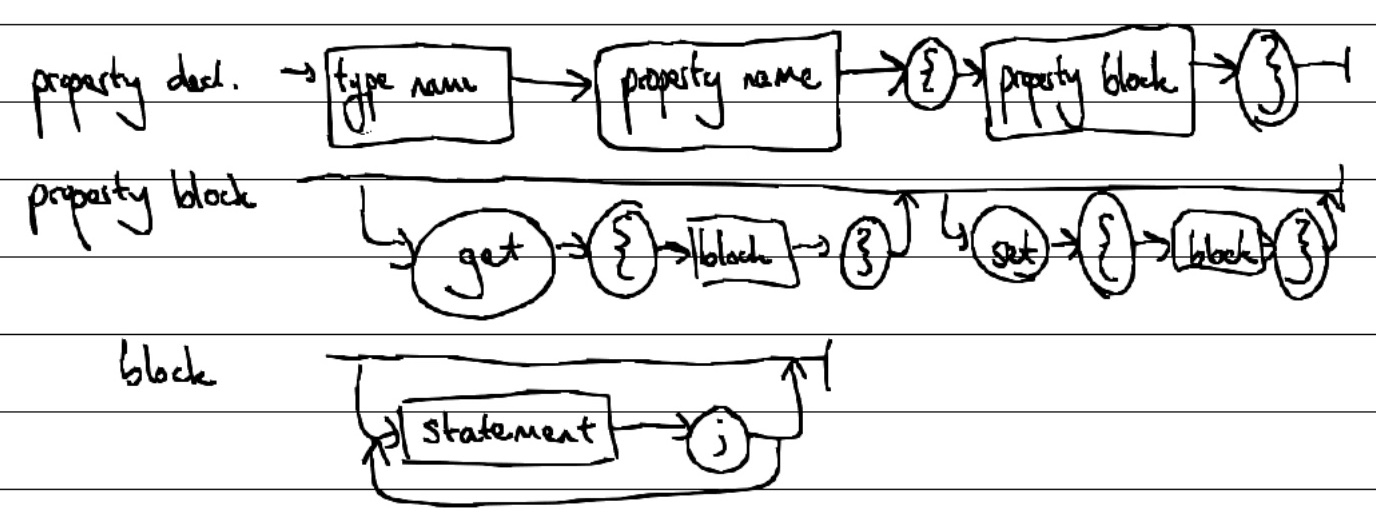 property decl. type name property name { property block }
property block
get { block } set { block }
block
statement ;